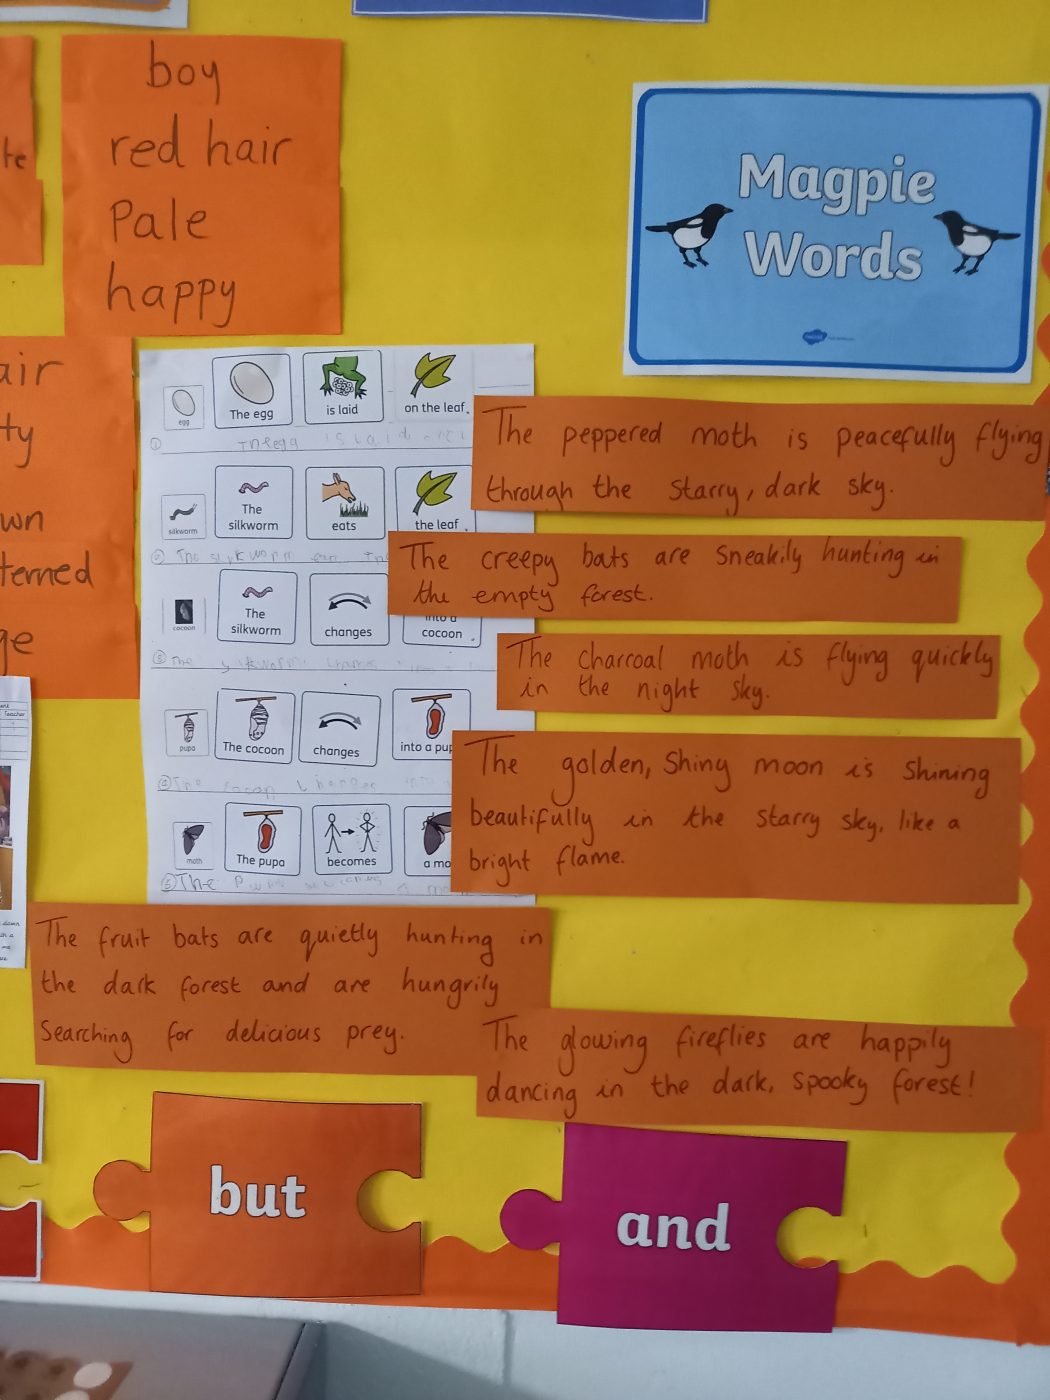 boy
red hair
Pale
happy
Magpie
Words
egg
The egg
is laid
on the leaf.
silkworm
The
silkworm
eats
the leaf.
cocoon
The
silkworm
changes
into a
cocoon.
pupa
The cocoon
changes
into a
moth
The pupa
becomes
a
The peppered moth is peacefully flying
through the starry, dark sky.
The creepy bats are sneakily hunting in
the empty forest.
The charcoal moth is flying quickly
in the night sky.
The golden, shiny moon is shining
beautifully in the starry sky, like a
bright flame.
The fruit bats are quietly hunting in
the dark forest and are hungrily
searching for delicious prey.
The glowing fireflies are happily
dancing in the dark, spooky forest!
but
and
Teacher